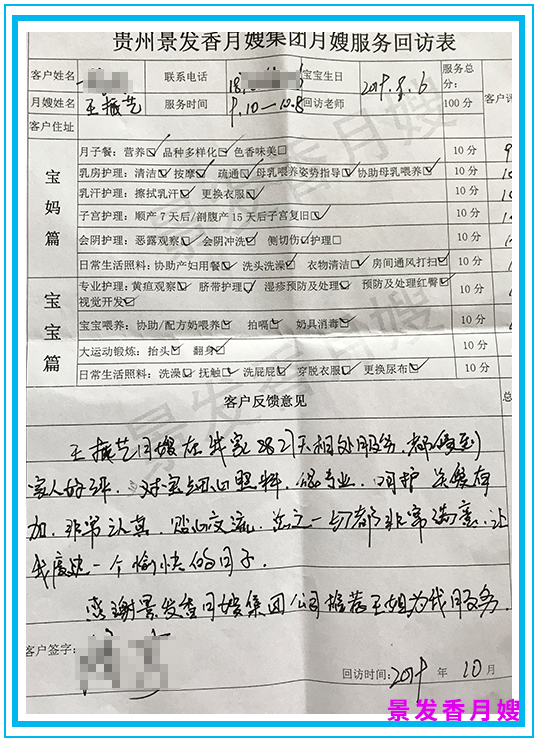 贵州景发香月嫂集团月嫂服务回访表
客户姓名 联系电话 18 宝宝生日 2019.8.6 服务总分: 客户评
月嫂姓名 王振艺 服务时间 9.10—10.8 回访老师 100分
客户住址
宝妈篇
月子餐:营养☑ 品种多样化☑ 色香味美☐ 10分
乳房护理:清洁☑ 按摩☑ 疏通☑ 母乳喂养姿势指导☑ 协助母乳喂养☑ 10分
乳汗护理:擦拭乳汗☑ 更换衣服☑ 10分
子宫护理:顺产7天后/剖腹产15天后子宫复旧☑ 10分
会阴护理:恶露观察☑ 会阴冲洗☑ 侧切伤口护理☐ 10分
日常生活照料:协助产妇用餐☑ 洗头洗澡☑ 衣物清洁☑ 房间通风打扫☑ 10分
宝宝篇
专业护理:黄疸观察☑ 脐带护理☑ 湿疹预防及处理☑ 预防及处理红臀☑
视觉开发☑ 10分
宝宝喂养:协助/配方奶喂养☑ 拍嗝☑ 奶具消毒☑ 10分
大运动锻炼:抬头☑ 翻身☑ 10分
日常生活照料:洗澡☑ 抚触☑ 洗屁屁☑ 穿脱衣服☑ 更换尿布☑ 10分
客户反馈意见 总
王振艺月嫂在我家28天相处服务,都得到
家人好评,对宝宝细心照料,很专业,呵护关爱有
加,非常认真,贴心交流,总之一切都非常满意,让
我度过一个愉快的月子.
感谢景发香月嫂集团公司推荐王姐为我月服务.
客户签字:
回访时间:2019年10月
景发香月嫂
景发香月嫂
景发香月嫂